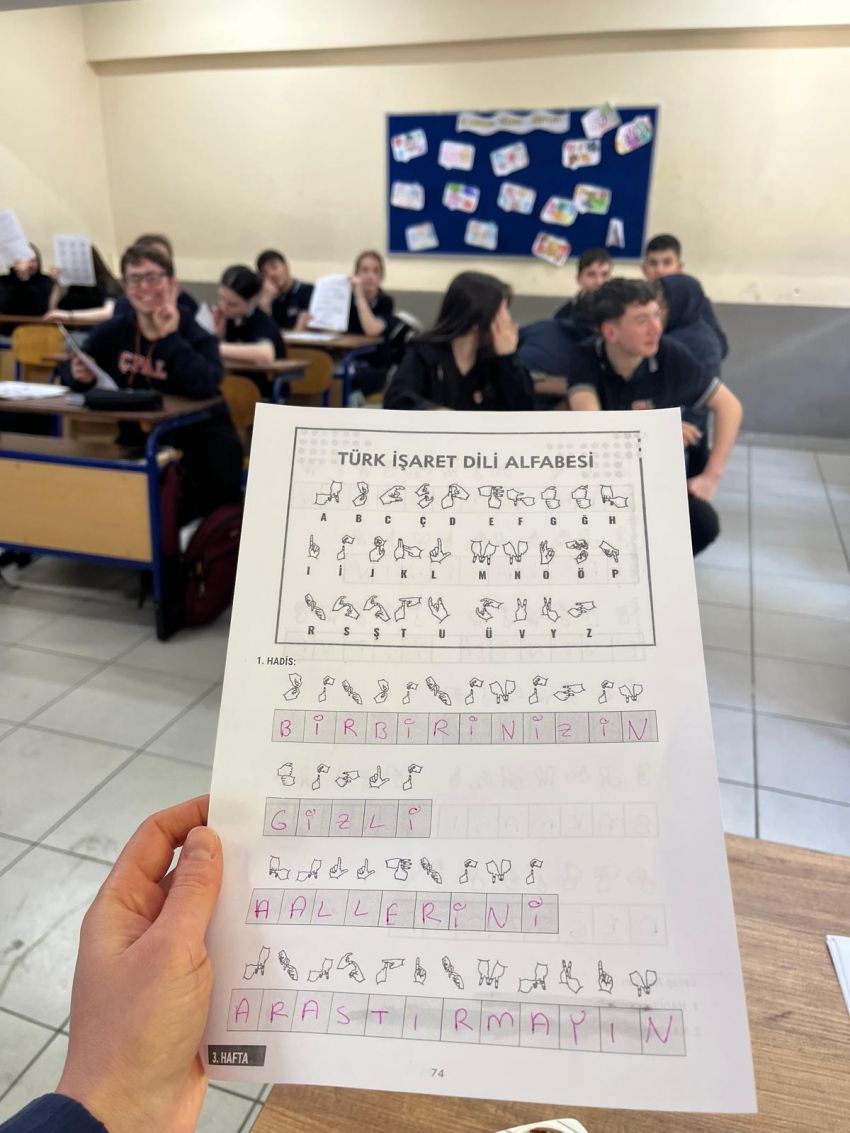 CPAL
TÜRK İŞARET DİLİ ALFABESİ
A B C Ç D E F G Ğ H
I İ J K L M N O Ö P
R S Ş T U Ü V Y Z
1. HADİS:
BİRBİRİNİZİN
GİZLİ
HALLERİNİ
ARASTIRMAYIN
3. HAFTA
74